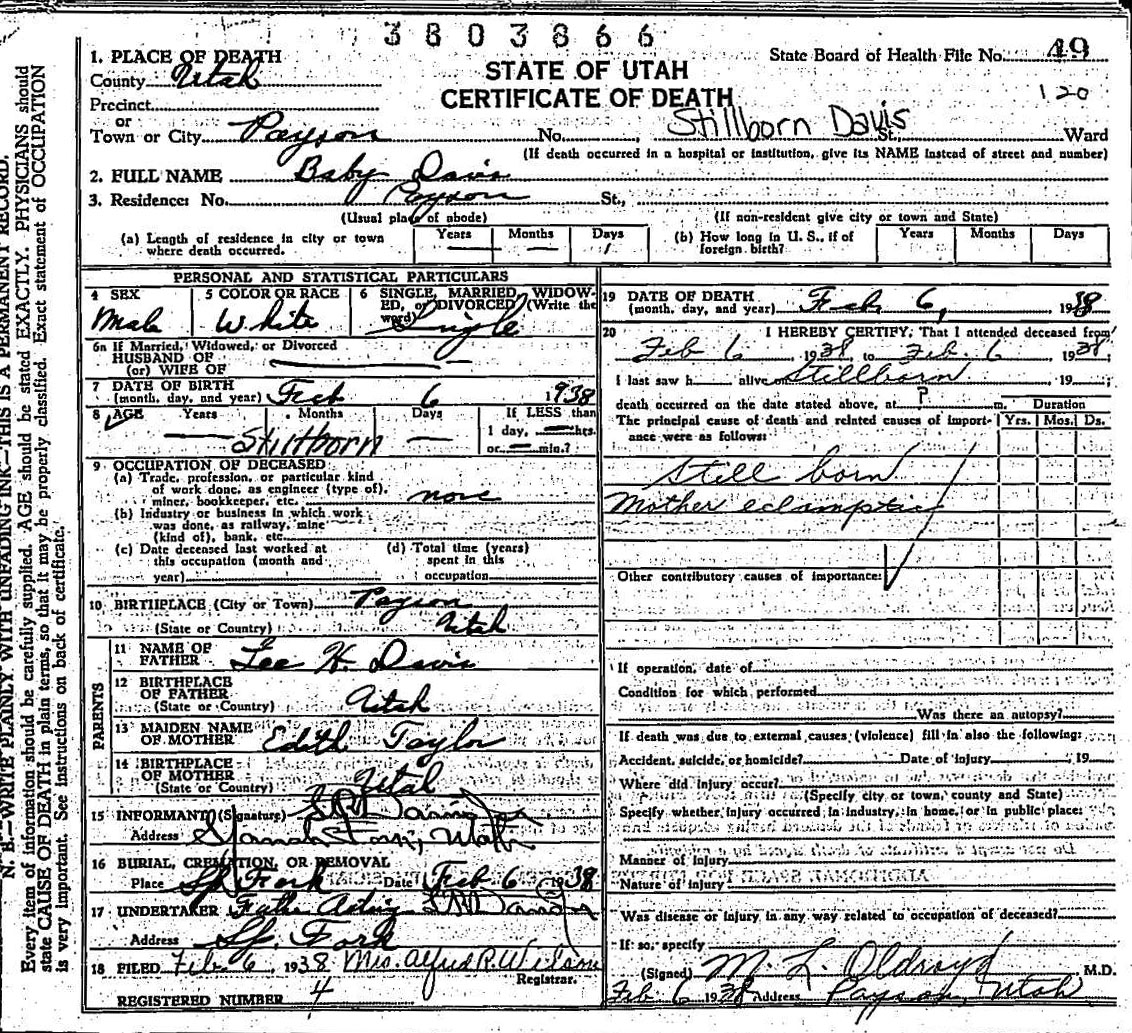 3803866
State Board of Health File No. 49
120
STATE OF UTAH
CERTIFICATE OF DEATH
1. PLACE OF DEATH
County Utah
Precinct
or
Town or City Payson No. Stillborn Davis St. Ward
(If death occurred in a hospital or institution, give its NAME instead of street and number)
2. FULL NAME Baby Davis
3. Residence: No. Payson St.,
(Usual place of abode) (If non-resident give city or town and State)
(a) Length of residence in city or town where death occurred. Years — Months — Days
(b) How long in U. S., if of foreign birth? Years Months Days
PERSONAL AND STATISTICAL PARTICULARS
4 SEX Male
5 COLOR OR RACE White
6 SINGLE, MARRIED, WIDOWED, or DIVORCED (Write the word) Single
6a If Married, Widowed, or Divorced
HUSBAND OF
(or) WIFE OF
7 DATE OF BIRTH
(month, day, and year) Feb 6 1938
8 AGE Years — Months Days — If LESS than
Stillborn
1 day, — hrs.
or — min.?
9 OCCUPATION OF DECEASED
(a) Trade, profession, or particular kind
of work done, as engineer (type of),
miner, bookkeeper, etc. none
(b) Industry or business in which work
was done, as railway, mine
(kind of), bank, etc.
(c) Date deceased last worked at
this occupation (month and
year)
(d) Total time (years)
spent in this
occupation
10 BIRTHPLACE (City or Town) Payson
(State or Country) Utah
PARENTS
11 NAME OF
FATHER Lee H. Davis
12 BIRTHPLACE
OF FATHER
(State or Country) Utah
13 MAIDEN NAME
OF MOTHER Edith Taylor
14 BIRTHPLACE
OF MOTHER
(State or Country) Utah
15 INFORMANT (Signature)
Address Utah
16 BURIAL, CREMATION, OR REMOVAL
Place Sp. Fork Date Feb 6 1938
17 UNDERTAKER Father Acting
Address Sp. Fork
18 FILED Feb. 6, 1938 Mrs. Alfred R. Wilson
Registrar.
REGISTERED NUMBER 4
19 DATE OF DEATH
(month, day, and year) Feb. 6, 1938
20 I HEREBY CERTIFY, That I attended deceased from
Feb 6, 1938, to Feb. 6, 1938;
I last saw h alive on Stillborn, 19 ;
death occurred on the date stated above, at P m. Duration
The principal cause of death and related causes of importance were as follows: Yrs. Mos. Ds.
Still born
Mother eclamptic
Other contributory causes of importance:
If operation, date of
Condition for which performed
Was there an autopsy?
If death was due to external causes (violence) fill in also the following:
Accident, suicide, or homicide? Date of injury , 19
Where did injury occur?
(Specify city or town, county and State)
Specify whether injury occurred in industry, in home, or in public place:
Manner of injury
Nature of injury
Was disease or injury in any way related to occupation of deceased?
If so, specify
(Signed) M. L. Oldroyd M.D.
Feb 6 1938 Address Payson, Utah
N. B.—WRITE PLAINLY, WITH UNFADING INK—THIS IS A PERMANENT RECORD.
Every item of information should be carefully supplied. AGE should be stated EXACTLY. PHYSICIANS should
state CAUSE OF DEATH in plain terms, so that it may be properly classified. Exact statement of OCCUPATION
is very important. See instructions on back of certificate.